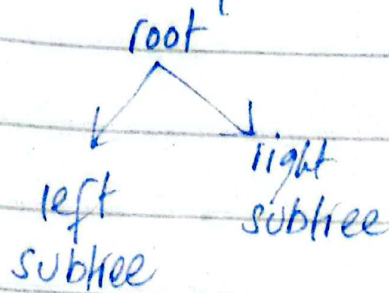 root
left
subtree
right
subtree